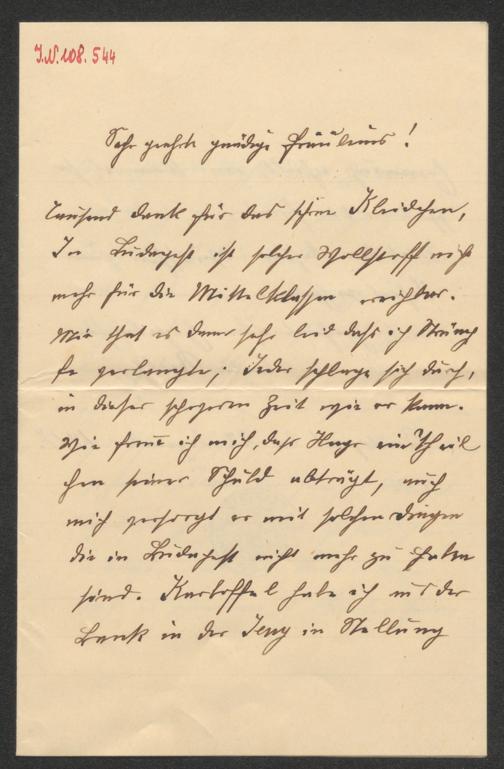 I.N. 108.544
Sehr geehrte gnädige Fräuleins!
Tausend dank für das schöne Kleidchen,
In Budapest ist solcher Wollstoff nicht
mehr für die Mittelklassen reichbar.
Mir that es dann sehr leid dass ich Strümp
fe verlangte; Jeder schlage sich durch,
in dieser schweren Zeit wie er kann.
Wie freue ich mich, dass Hugo ein Theil
chen seiner Schuld abträgt, auch
mich versorgt er mit solchen dingen
die in Budapest nicht mehr zu haben
sind. Kartoffel habe ich aus der
Bank in der Jenny in Stellung